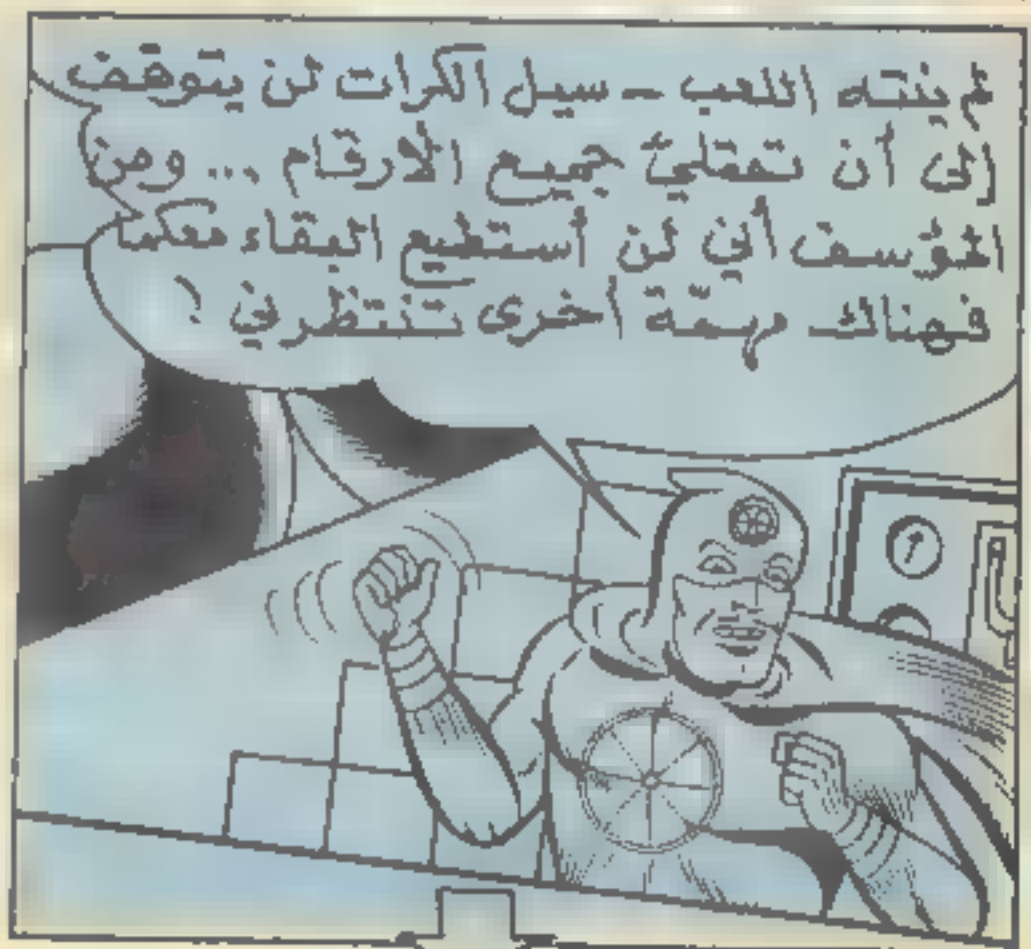 لم ينته اللعب - سيل الكرات لن يتوقف
إلى أن تقفلي جميع الأرقام ... ومن
المؤسف أني لن أستطيع البقاء معكما
فهناك مهمّة أخرى تنتظرني !